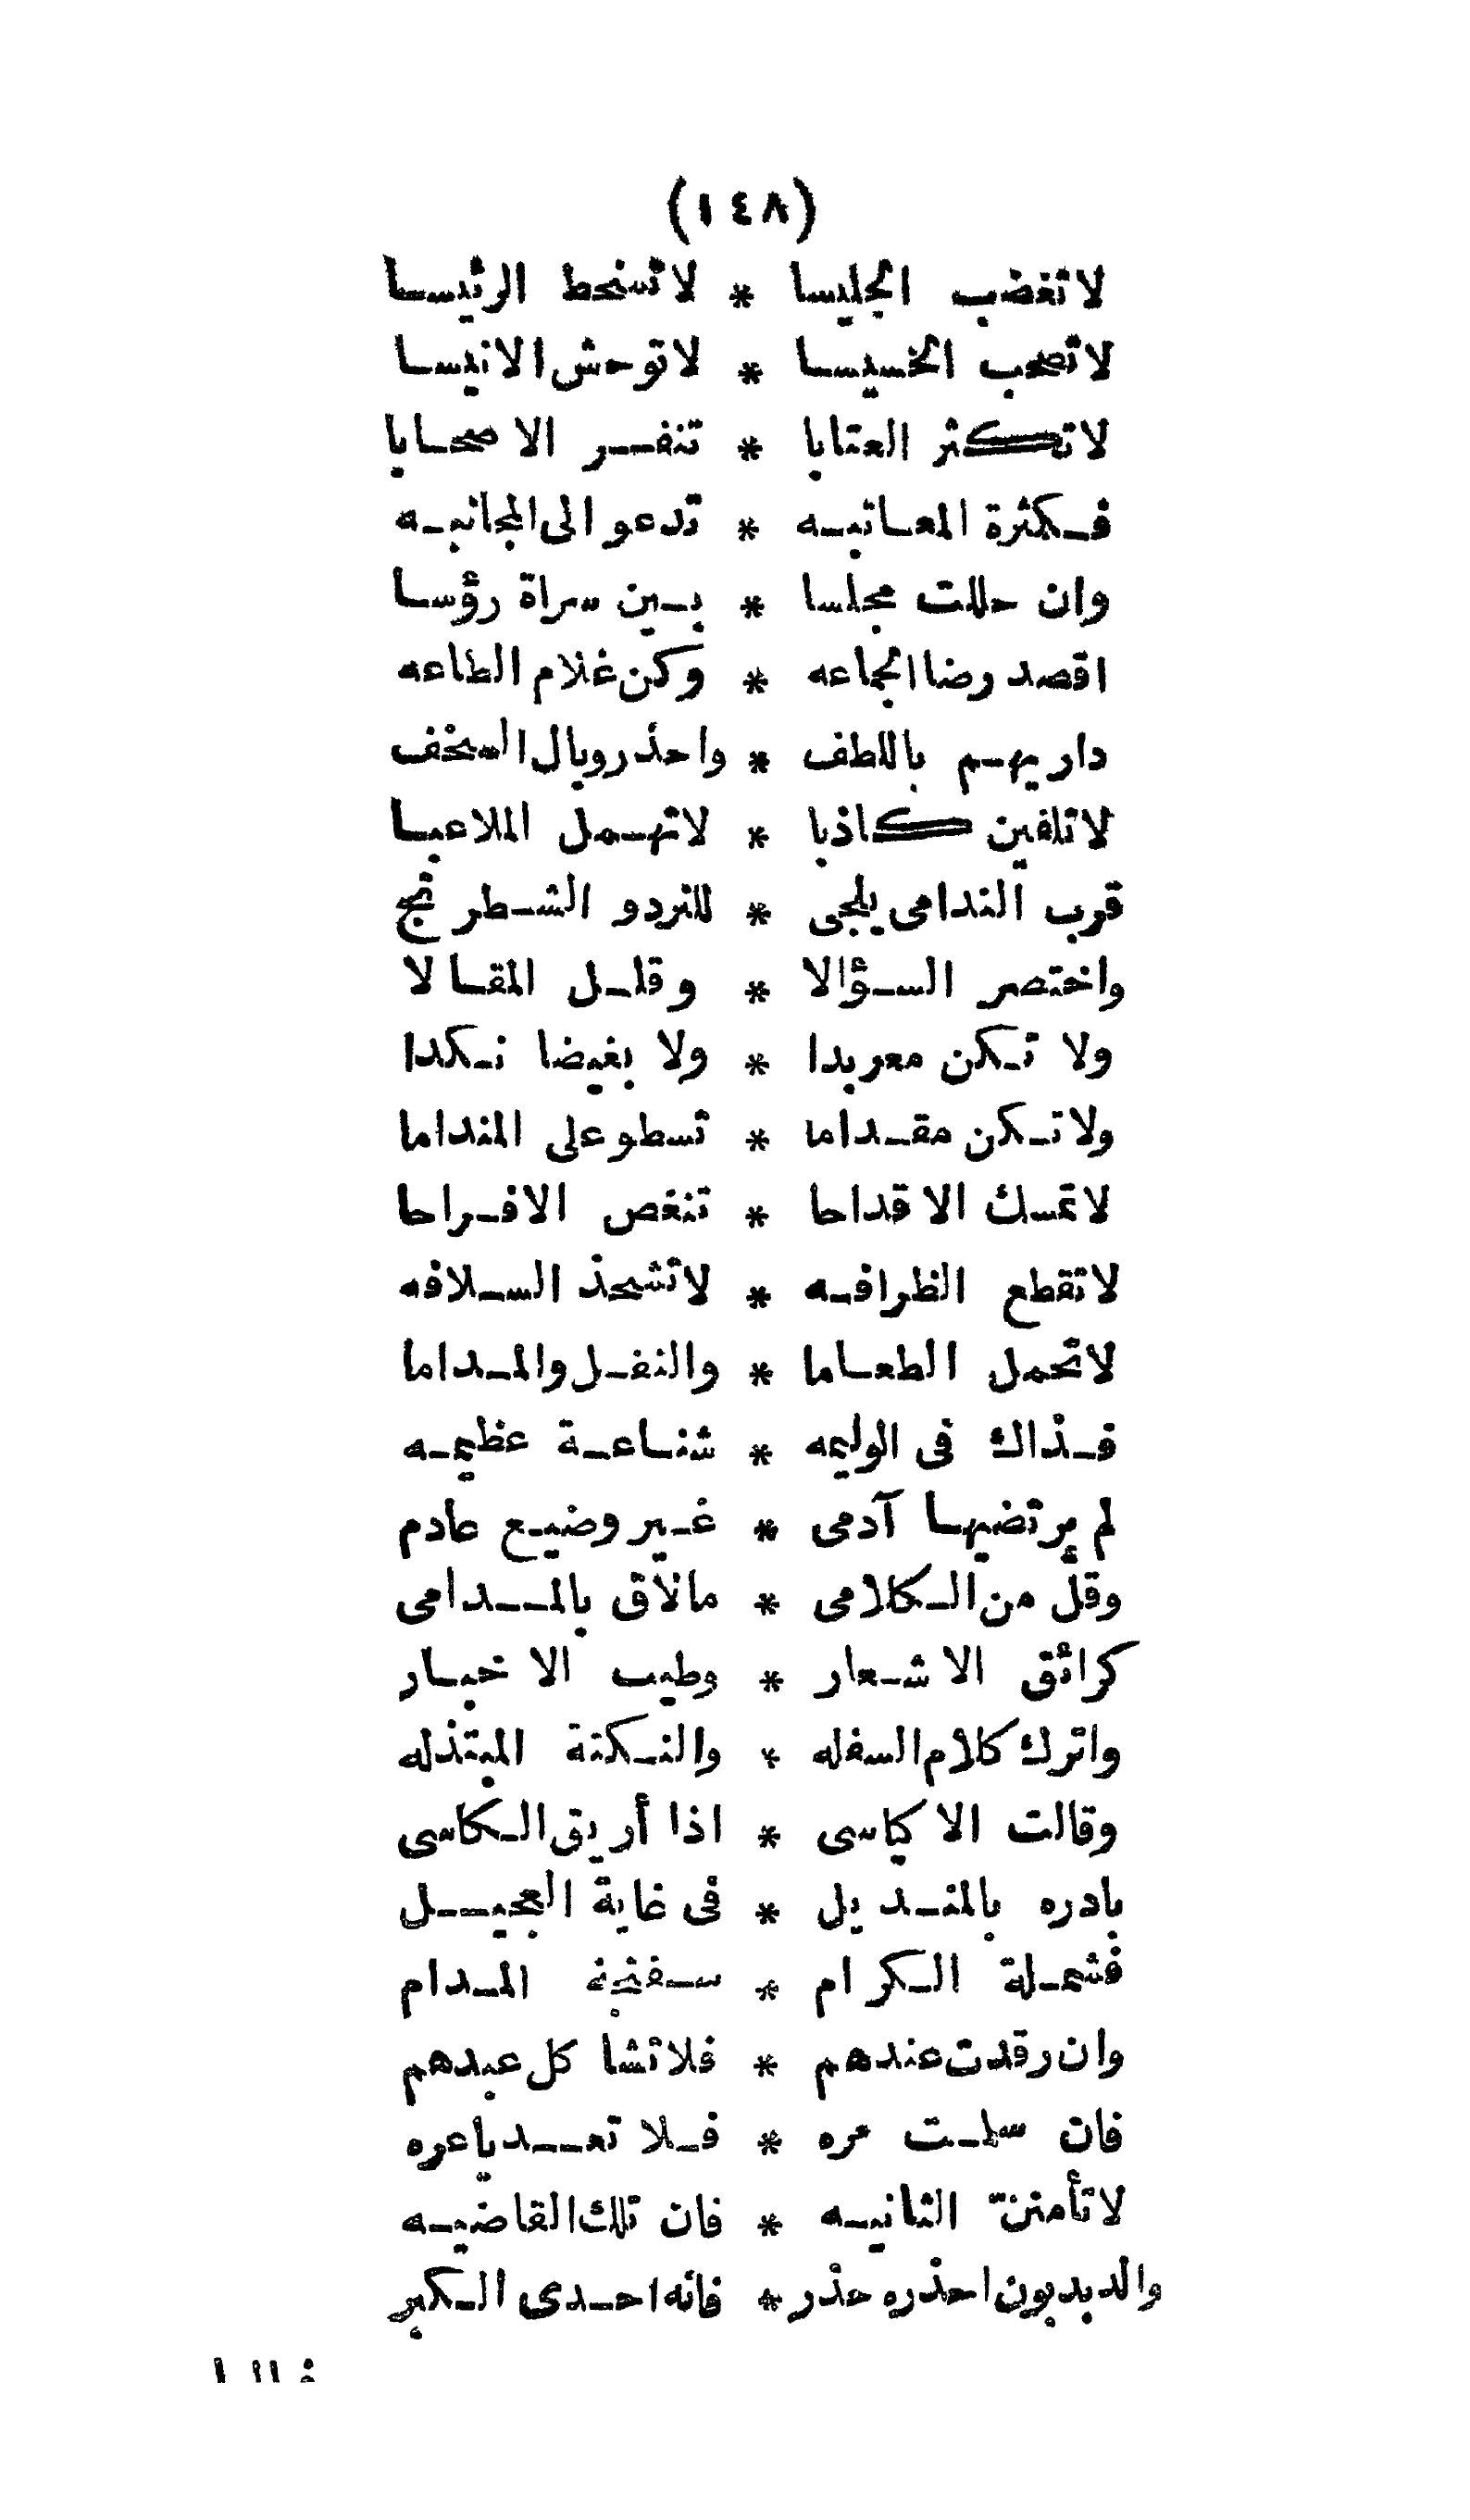 (١٤٨)
لاتغضب الجليسا * لاتسخط الرئيسا
لاتصحب الخسيسا * لاتوحش الانيسا
لاتكثر العتابا * تنفر الاصحابا
فكثرة المعاتبه * تدعو الى المجانبه
وان حللت مجلسا * بين سراة رؤسا
اقصد رضا الجماعه * وكن غلام الطاعه
داريهم باللطف * واحذر وبال السخف
لاتلفين كاذبا * لاتهمل الملاعبا
قرب الندامى يلجى * للنرد و الشطر نج
واختصر السؤالا * وقلل المقالا
ولا تكن معربدا * ولا بغيضا نكدا
ولا تكن مقداما * تسطو على النداما
لاتمسك الاقداحا * تنغص الافراحا
لاتقطع الظرافه * لاتشحذ السلافه
لاتحمل الطعاما * والنقل والمداما
فذاك فى الوليمه * شناعة عظيمه
لم يرتضيها آدمى * غير وضيع عادم
وقل من الكلامى * مالاق بالمدامى
كرائق الاشعار * وطيب الاخبار
واترك كلام السفله * والنكتة المبتذله
وقالت الاكياسى * اذا أريق الكاسى
بادره بالمنديل * فى غاية التعجيل
فشملة الكرام * سفنجة المدام
وان رقدت عندهم * فلاتشا كل عبدهم
فان سلمت مره * فلا تعد ياعره
لاتأمنن الثانيه * فان تلك القاضيه
والدبدبون احذره حذر * فانه احدى الكبر